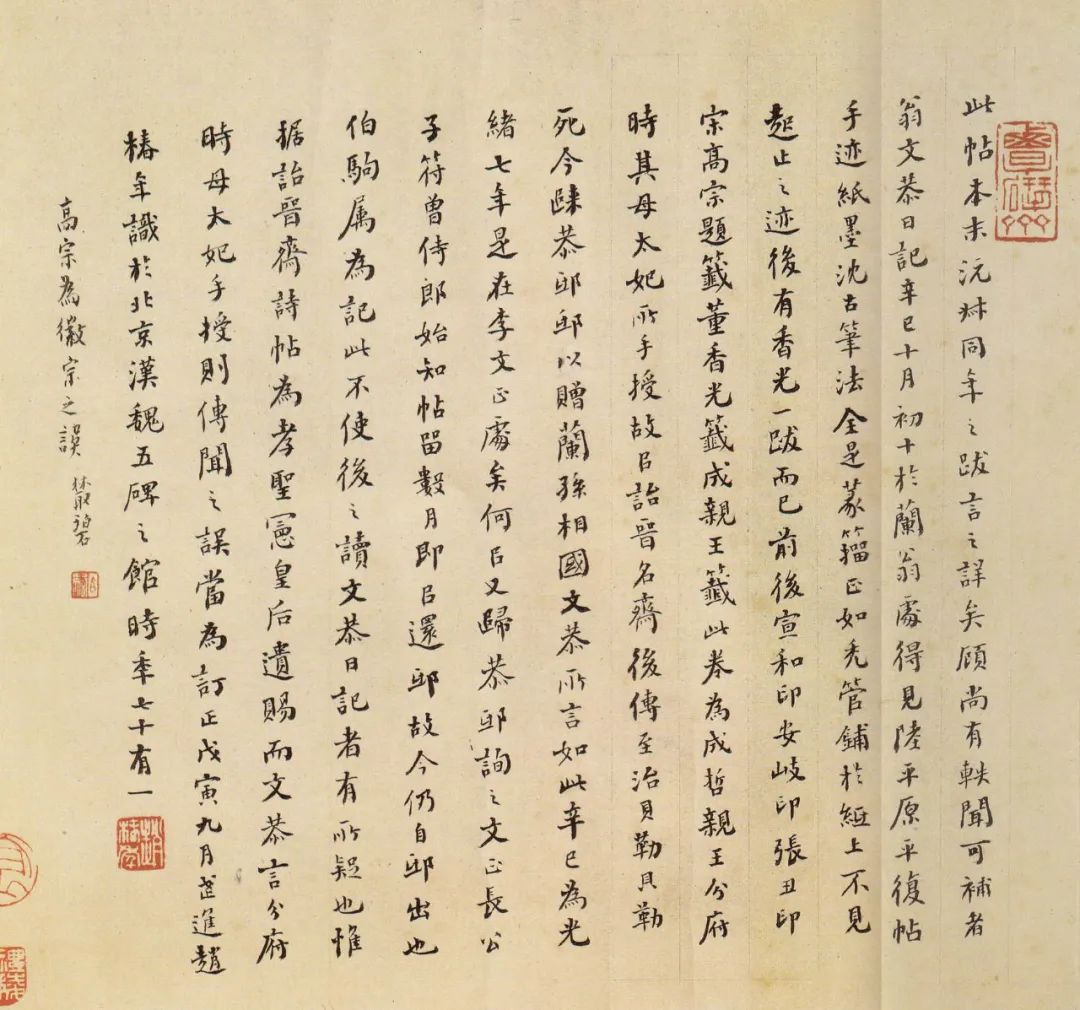 此帖本末沅叔同年之跋言之詳矣顧尚有軼聞可補者
翁文恭日記辛巳十月初十於蘭翁處得見陸平原平復帖
手迹紙墨沈古筆法全是篆籀正如禿管鋪於紙上不見
起止之迹後有香光一跋而已前後宣和印安岐印張丑印
宗高宗題籤董香光籤成親王籤此卷為成哲親王分府
時其母太妃所手授故㠯詒晉名齋後傳至治貝勒貝勒
死今歸恭邸邸以贈蘭孫相國文恭所言如此辛巳為光
緒七年是在李文正處矣何㠯又歸恭邸詢之文正長公
子符曾侍郎始知帖留數月即㠯還邸故今仍自邸出也
伯駒属為記此不使後之讀文恭日記者有所疑也惟
据詒晉齋詩帖為孝聖憲皇后遺賜而文恭言分府
時母太妃手授則傳聞之誤當為訂正戊寅九月武進趙
椿年識於北京漢魏五碑之館時年七十有一
高宗為徽宗之誤